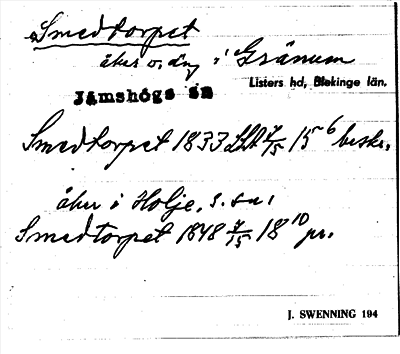 Smedtorpet
åker o. äng i Gränum
Jämshögs sn
Listers hd, Blekinge län.
Smedtorpet 1833 LSA 7/15 15⁶ beskr.
åker i Holje, s. sn,
Smedtorpet 1848 7/15 18¹⁰ pr.
J. SWENNING 194